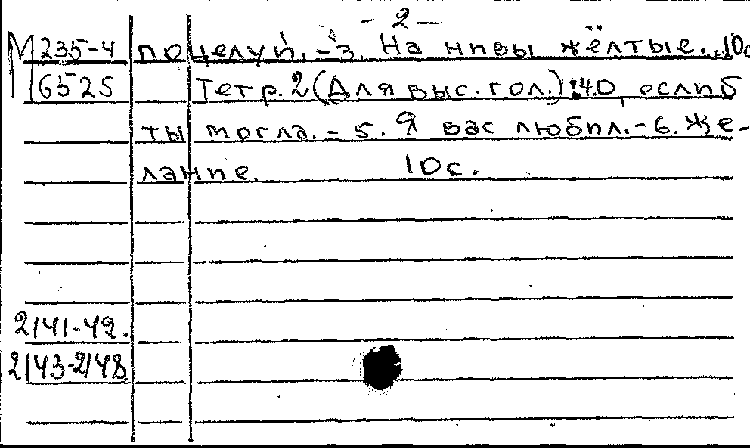 - 2 -
М 235-4 поцелуй. - 3. На нивы жёлтые... 10с
6525 Тетр. 2 (Для выс. гол.): 4. О, если б
ты могла. - 5. Я вас любил. - 6. Же-
лание. 10с.
2141-42.
2143-2148